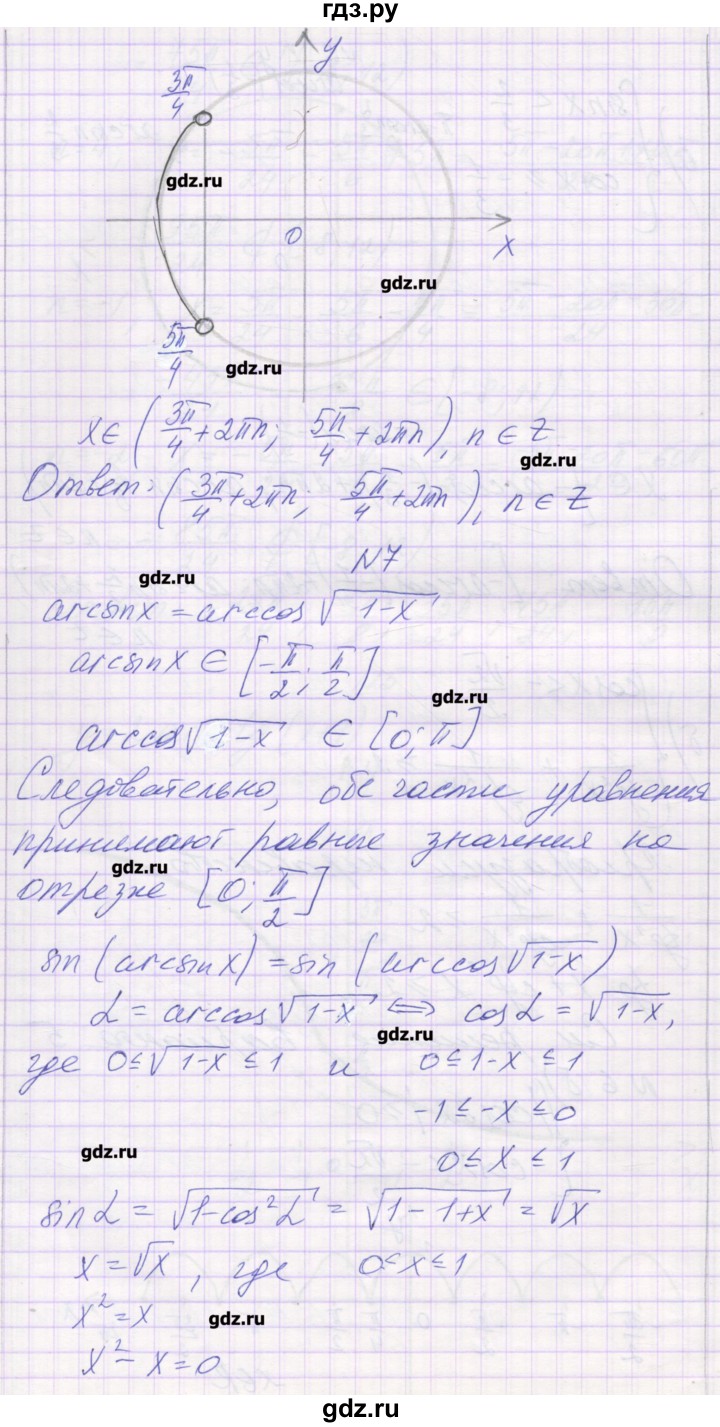 гдз.ру
y
3π/4
gdz.ru
0
x
gdz.ru
5π/4
gdz.ru
x ∈ (3π/4 + 2πn; 5π/4 + 2πn), n ∈ Z
gdz.ru
Ответ: (3π/4 + 2πn; 5π/4 + 2πn), n ∈ Z
N7
gdz.ru
arcsinx = arccos √(1-x)
arcsinx ∈ [-π/2; π/2]
gdz.ru
arccos√(1-x) ∈ [0; π]
Следовательно, обе части уравнения
принимают равные значения на
gdz.ru
отрезке [0; π/2]
sin(arcsinx) = sin(arccos√(1-x))
α = arccos√(1-x) ⇔ cosα = √(1-x),
gdz.ru
где 0≤√(1-x)≤1 и 0≤1-x≤1
-1≤-x≤0
gdz.ru
0≤x≤1
sinα = √(1-cos²α) = √(1-1+x) = √x
x = √x, где 0≤x≤1
x² = x
gdz.ru
x² - x = 0
гдз.ру